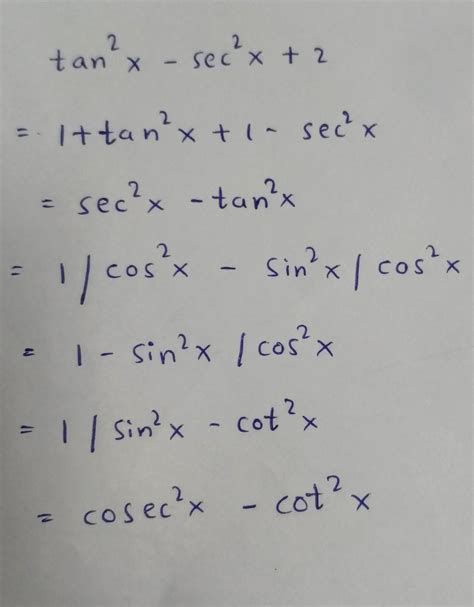 tan²x - sec²x + 2
= 1+tan²x + 1 - sec²x
= sec²x - tan²x
= 1/cos²x - sin²x/cos²x
= 1 - sin²x/cos²x
= 1/sin²x - cot²x
= cosec²x - cot²x